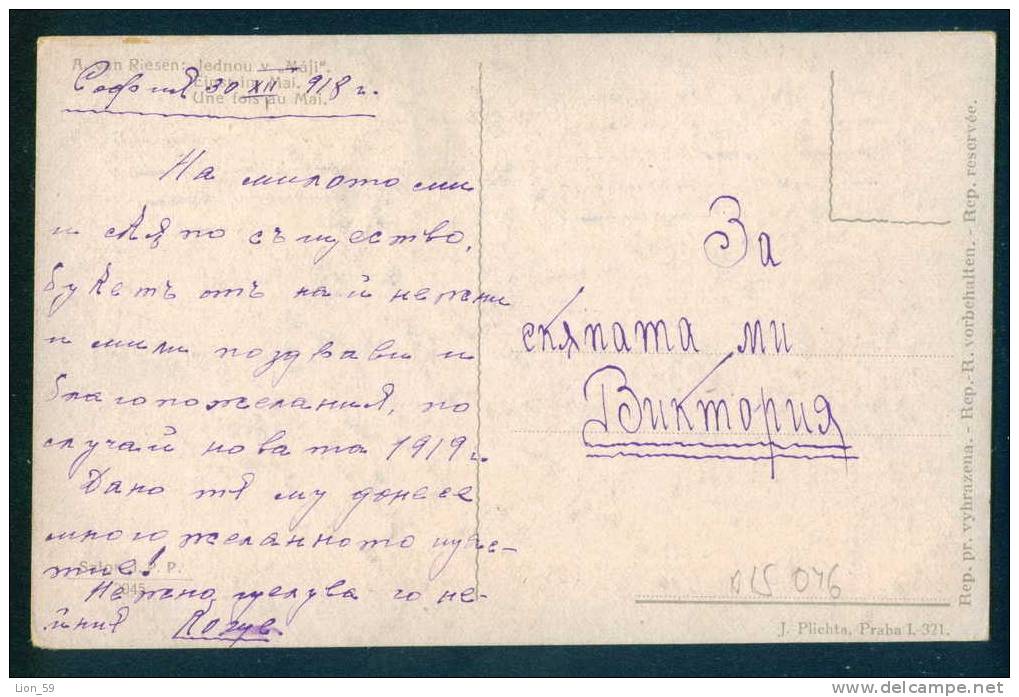 A. von Riesen: Jednou v „Máji“.
Einst im Mai.
Une fois au Mai.
София 30 XII 918 г.
На милото ми
и скѫпо същество,
букетъ отъ най нежни
и мили поздрави и
благопожелания, по
случай новата 1919 г.
Дано тя му донесе
многожеланното щас-
тие!
Нежно целува го не-
йния
Salon J. P.
2045
За
скѫпата ми
Виктория
Rep. pr. vyhrazena. - Rep.-R. vorbehalten. - Rep. reservée.
015 046
J. Plichta, Praha I.-321.
Lion_59
http://www.delcampe.net